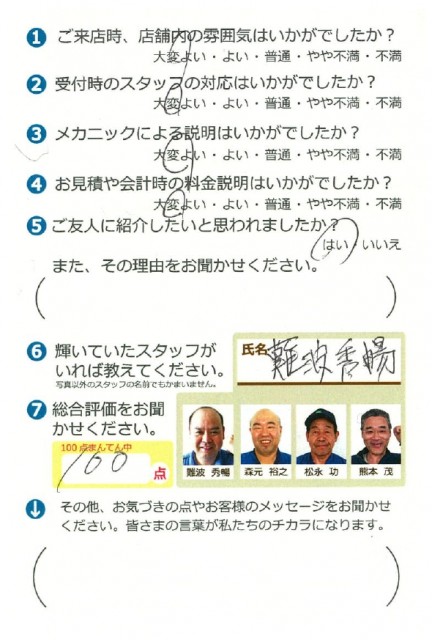 1 ご来店時、店舗内の雰囲気はいかがでしたか?
大変よい・よい・普通・やや不満・不満
2 受付時のスタッフの対応はいかがでしたか?
大変よい・よい・普通・やや不満・不満
3 メカニックによる説明はいかがでしたか?
大変よい・よい・普通・やや不満・不満
4 お見積や会計時の料金説明はいかがでしたか?
大変よい・よい・普通・やや不満・不満
5 ご友人に紹介したいと思われましたか?
はい・いいえ
また、その理由をお聞かせください。
6 輝いていたスタッフが
いれば教えてください。
写真以外のスタッフの名前でもかまいません。
氏名 難波秀暢
7 総合評価をお聞
かせください。
100点まんてん中
100 点
難波 秀暢 森元 裕之 松永 功 熊本 茂
その他、お気づきの点やお客様のメッセージをお聞かせ
ください。皆さまの言葉が私たちのチカラになります。